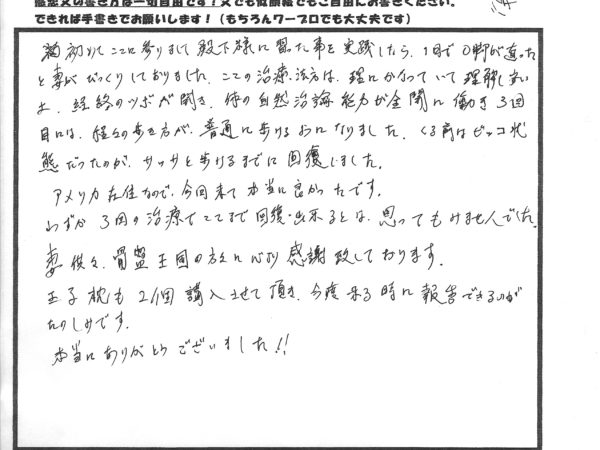 できれば手書きでお願いします！（もちろんワープロでも大丈夫です）
初めてここに参りまして殿下様に習った事を実践したら、1日でO脚が直った
と妻がびっくりしておりました。ここの治療方法は、理にかなっていて理解し易い
し、経絡のツボが開き、体の自然治諭能力が全開に働き3回
目には、程々の歩き方が、普通に歩ける様になりました。くる前はビッコ状
態だったのが、サッサと歩けるまでに回復しました。
アメリカ在住なので、今回来て本当に良かったです。
わずか3回の治療でここまで回復出来るとは、思ってもみませんでした。
妻供々、骨盤王国の方々に心より感謝致しております。
王子枕も2個購入させて頂き、今度来る時に報告できるのが
たのしみです。
本当にありがとうございました!!